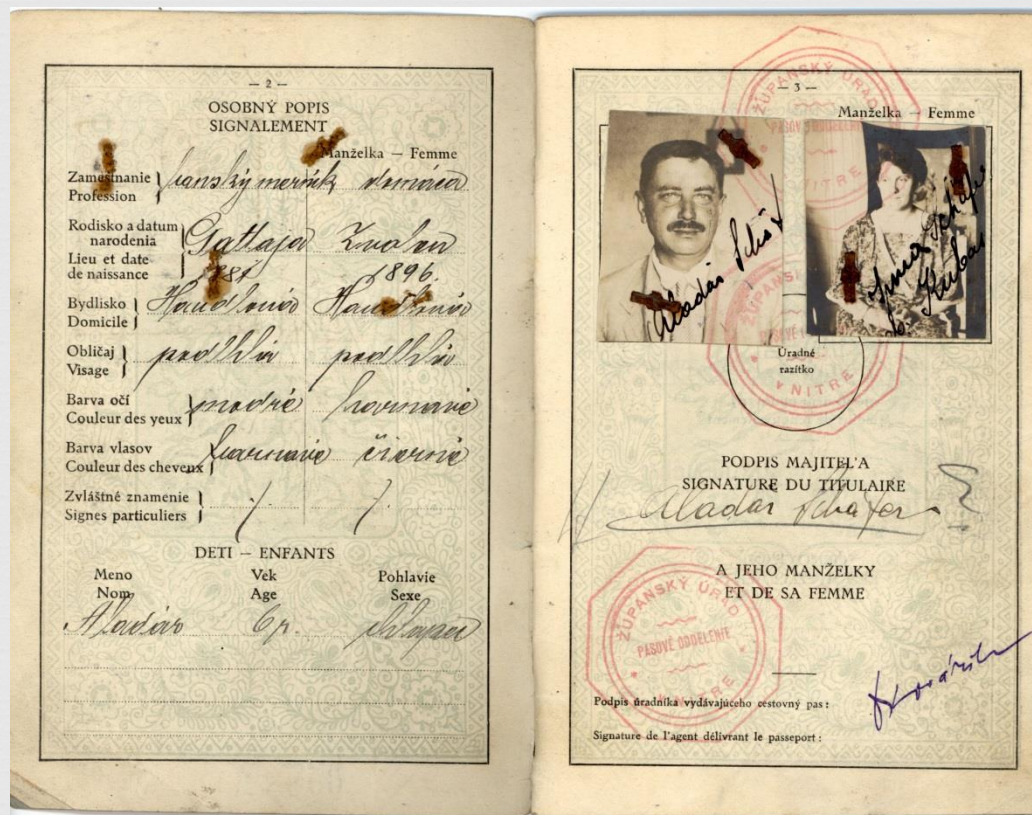 — 2 —
OSOBNÝ POPIS
SIGNALEMENT
Manželka — Femme
Zamestnanie
Profession
banský merník domáca
Rodisko a datum
narodenia
Gattaja Zvolen
Lieu et date
de naissance
1896.
Bydlisko
Domicile
Handlová Handlová
Obličaj
Visage
podlhlá podlhlá
Barva očí
Couleur des yeux
modré harmavé
Barva vlasov
Couleur des cheveux
harmavé čierné
Zvláštné znamenie
Signes particuliers
DETI — ENFANTS
Meno Vek Pohlavie
Nom Age Sexe
Aladár 6r. chlapec
— 3 —
Manželka — Femme
ŽUPANSKÝ ÚRAD
PASOVÉ ODDELENIE
V NITRE
Aladár
Irma Schäfer
Úradné
razítko
V NITRE
PODPIS MAJITEĽA
SIGNATURE DU TITULAIRE
Aladár Schäfer
A JEHO MANŽELKY
ET DE SA FEMME
ŽUPANSKÝ ÚRAD
PASOVÉ ODDELENIE
V NITRE
Podpis úradníka vydávajúceho cestovný pas :
Signature de l'agent délivrant le passeport :